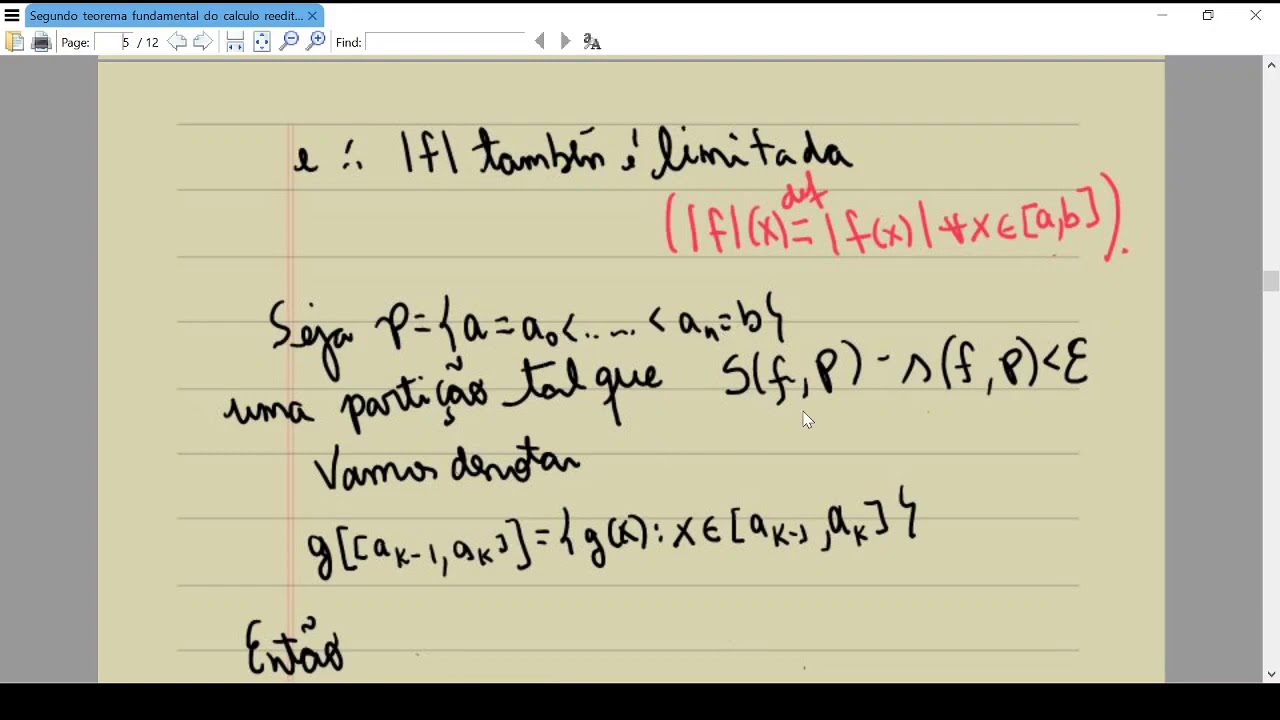 Segundo teorema fundamental do calculo reedit...
Page: 5 / 12 Find:
e ∴ |f| também é limitada
(|f|(x) def= |f(x)| ∀x∈[a,b]).
Seja P={a=a₀<.....<aₙ=b}
uma partição tal que S(f,P) - s(f,P)<ε
Vamos denotar
g[[aₖ₋₁,aₖ]]={g(x): x∈[aₖ₋₁,aₖ]}
Então